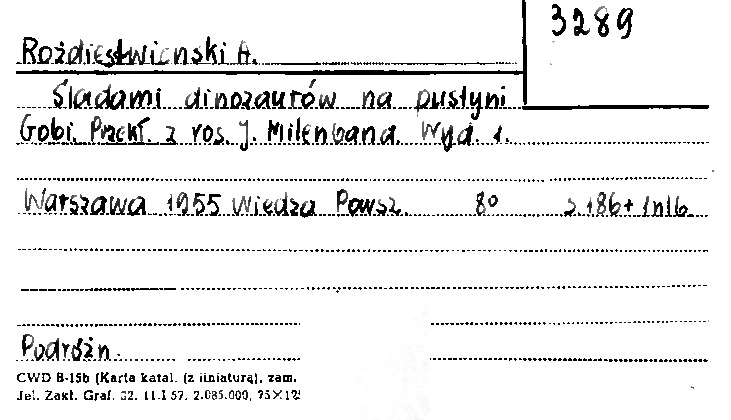 3289
Rożdiestwienski A.
Śladami dinozaurów na pustyni
Gobi. Przekł. z ros. J. Milenbana. Wyd. 1.
Warszawa 1955 Wiedza Powsz. 8° s. 186 + 1 nlb.
Podróżn.
CWD B-15b (Karta katal. (z liniaturą), zam.
Jel. Zakł. Graf. 32. 11.I 57. 2.085.000, 75×12